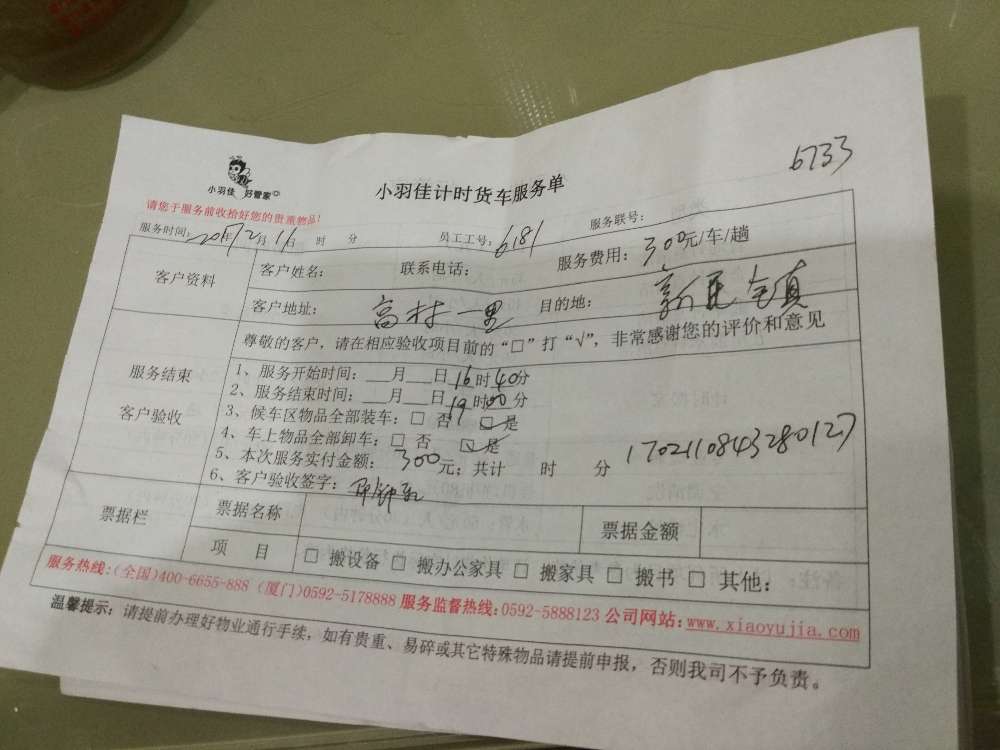 6733
小羽佳 好管家
小羽佳计时货车服务单
请您于服务前收拾好您的贵重物品!
服务时间: 2017年2月11日 时 分 员工工号: 6181 服务联号:
客户资料 客户姓名: 联系电话: 服务费用: 300元/车/趟
客户地址: 高林一里 目的地: 新民镇
尊敬的客户, 请在相应验收项目前的“□”打“√”, 非常感谢您的评价和意见
服务结束
客户验收
1、服务开始时间: __月__日16时40分
2、服务结束时间: __月__日19时00分
3、候车区物品全部装车: □ 否 ☑是
4、车上物品全部卸车: □ 否 ☑是
5、本次服务实付金额: 300元; 共计 时 分
1702110843280127
6、客户验收签字:
票据栏 票据名称 票据金额
项 目 □ 搬设备 □ 搬办公家具 □ 搬家具 □ 搬书 □ 其他:
服务热线:(全国)400-6655-888 (厦门)0592-5178888 服务监督热线:0592-5888123 公司网站:www.xiaoyujia.com
温馨提示: 请提前办理好物业通行手续, 如有贵重、易碎或其它特殊物品请提前申报, 否则我司不予负责。